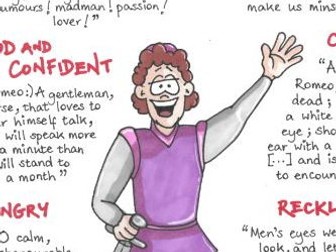 umours! madman! passion!
lover!"
OD AND
CONFIDENT
omeo:) A gentleman,
rse, that loves to
r himself talk,
will speak more
a minute than
will stand to
a month"
NGRY
O calm,
make us mins
C
"A
Romeo
dead;
a white
eye; sho
ear with a
[...] and is
to encoun
RECKL
"Men's eyes w
look, and le